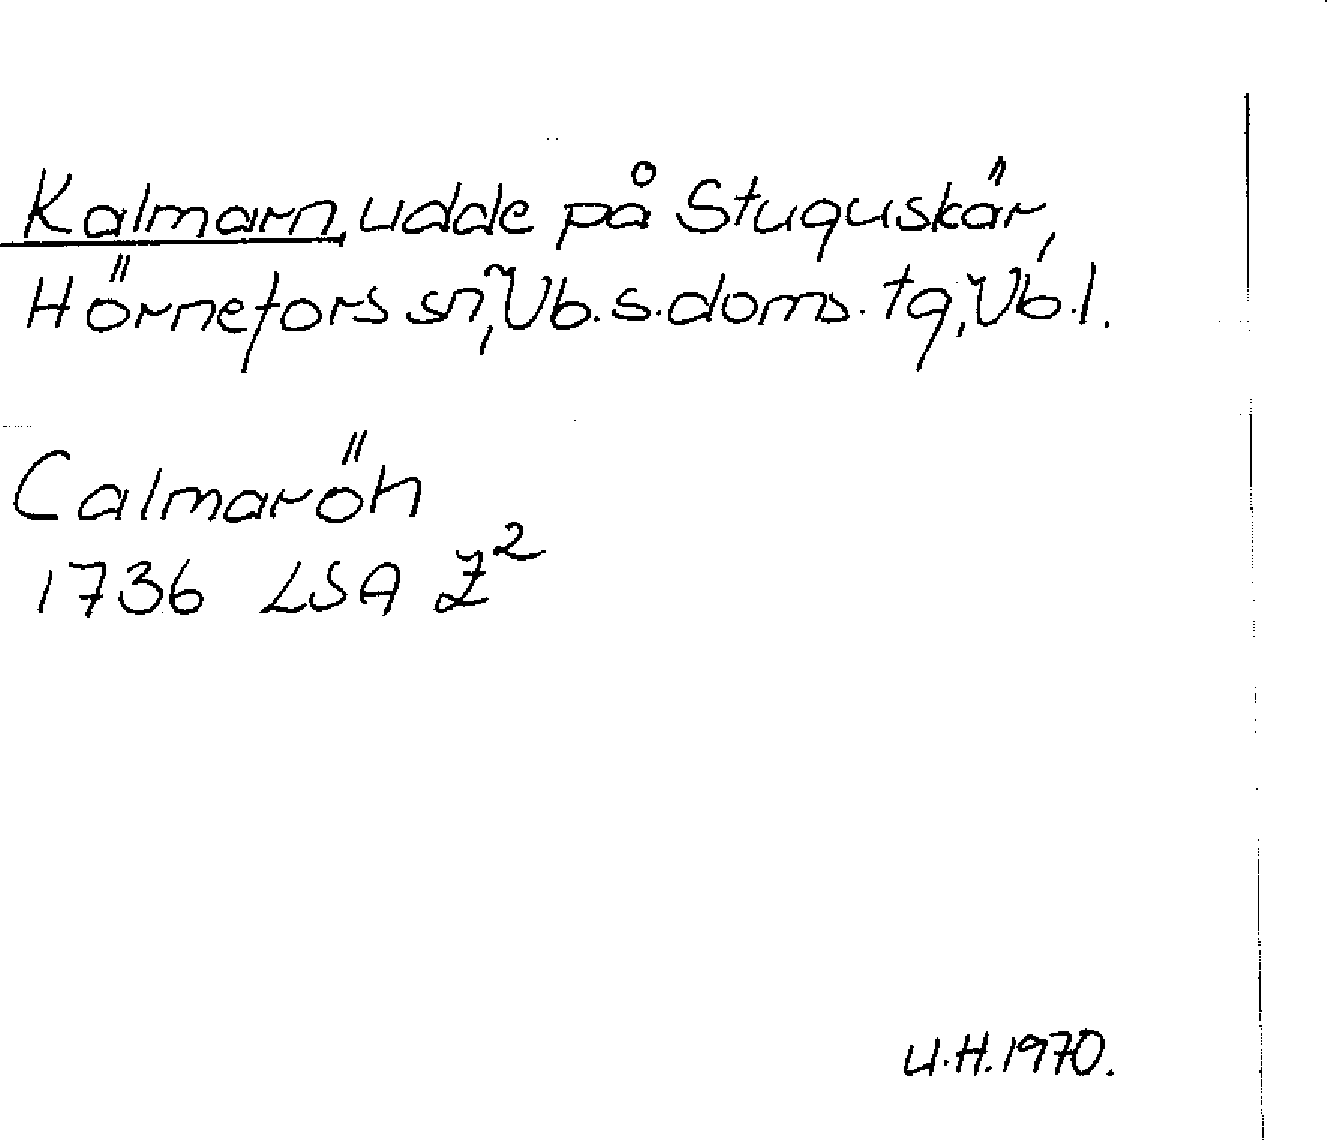 Kalmarn, udde på Stuguskär,
Hörnefors sn, Vb. s. doms. tg, Vb. l.
Calmaröh
1736 LSA Z²
U.H. 1970.